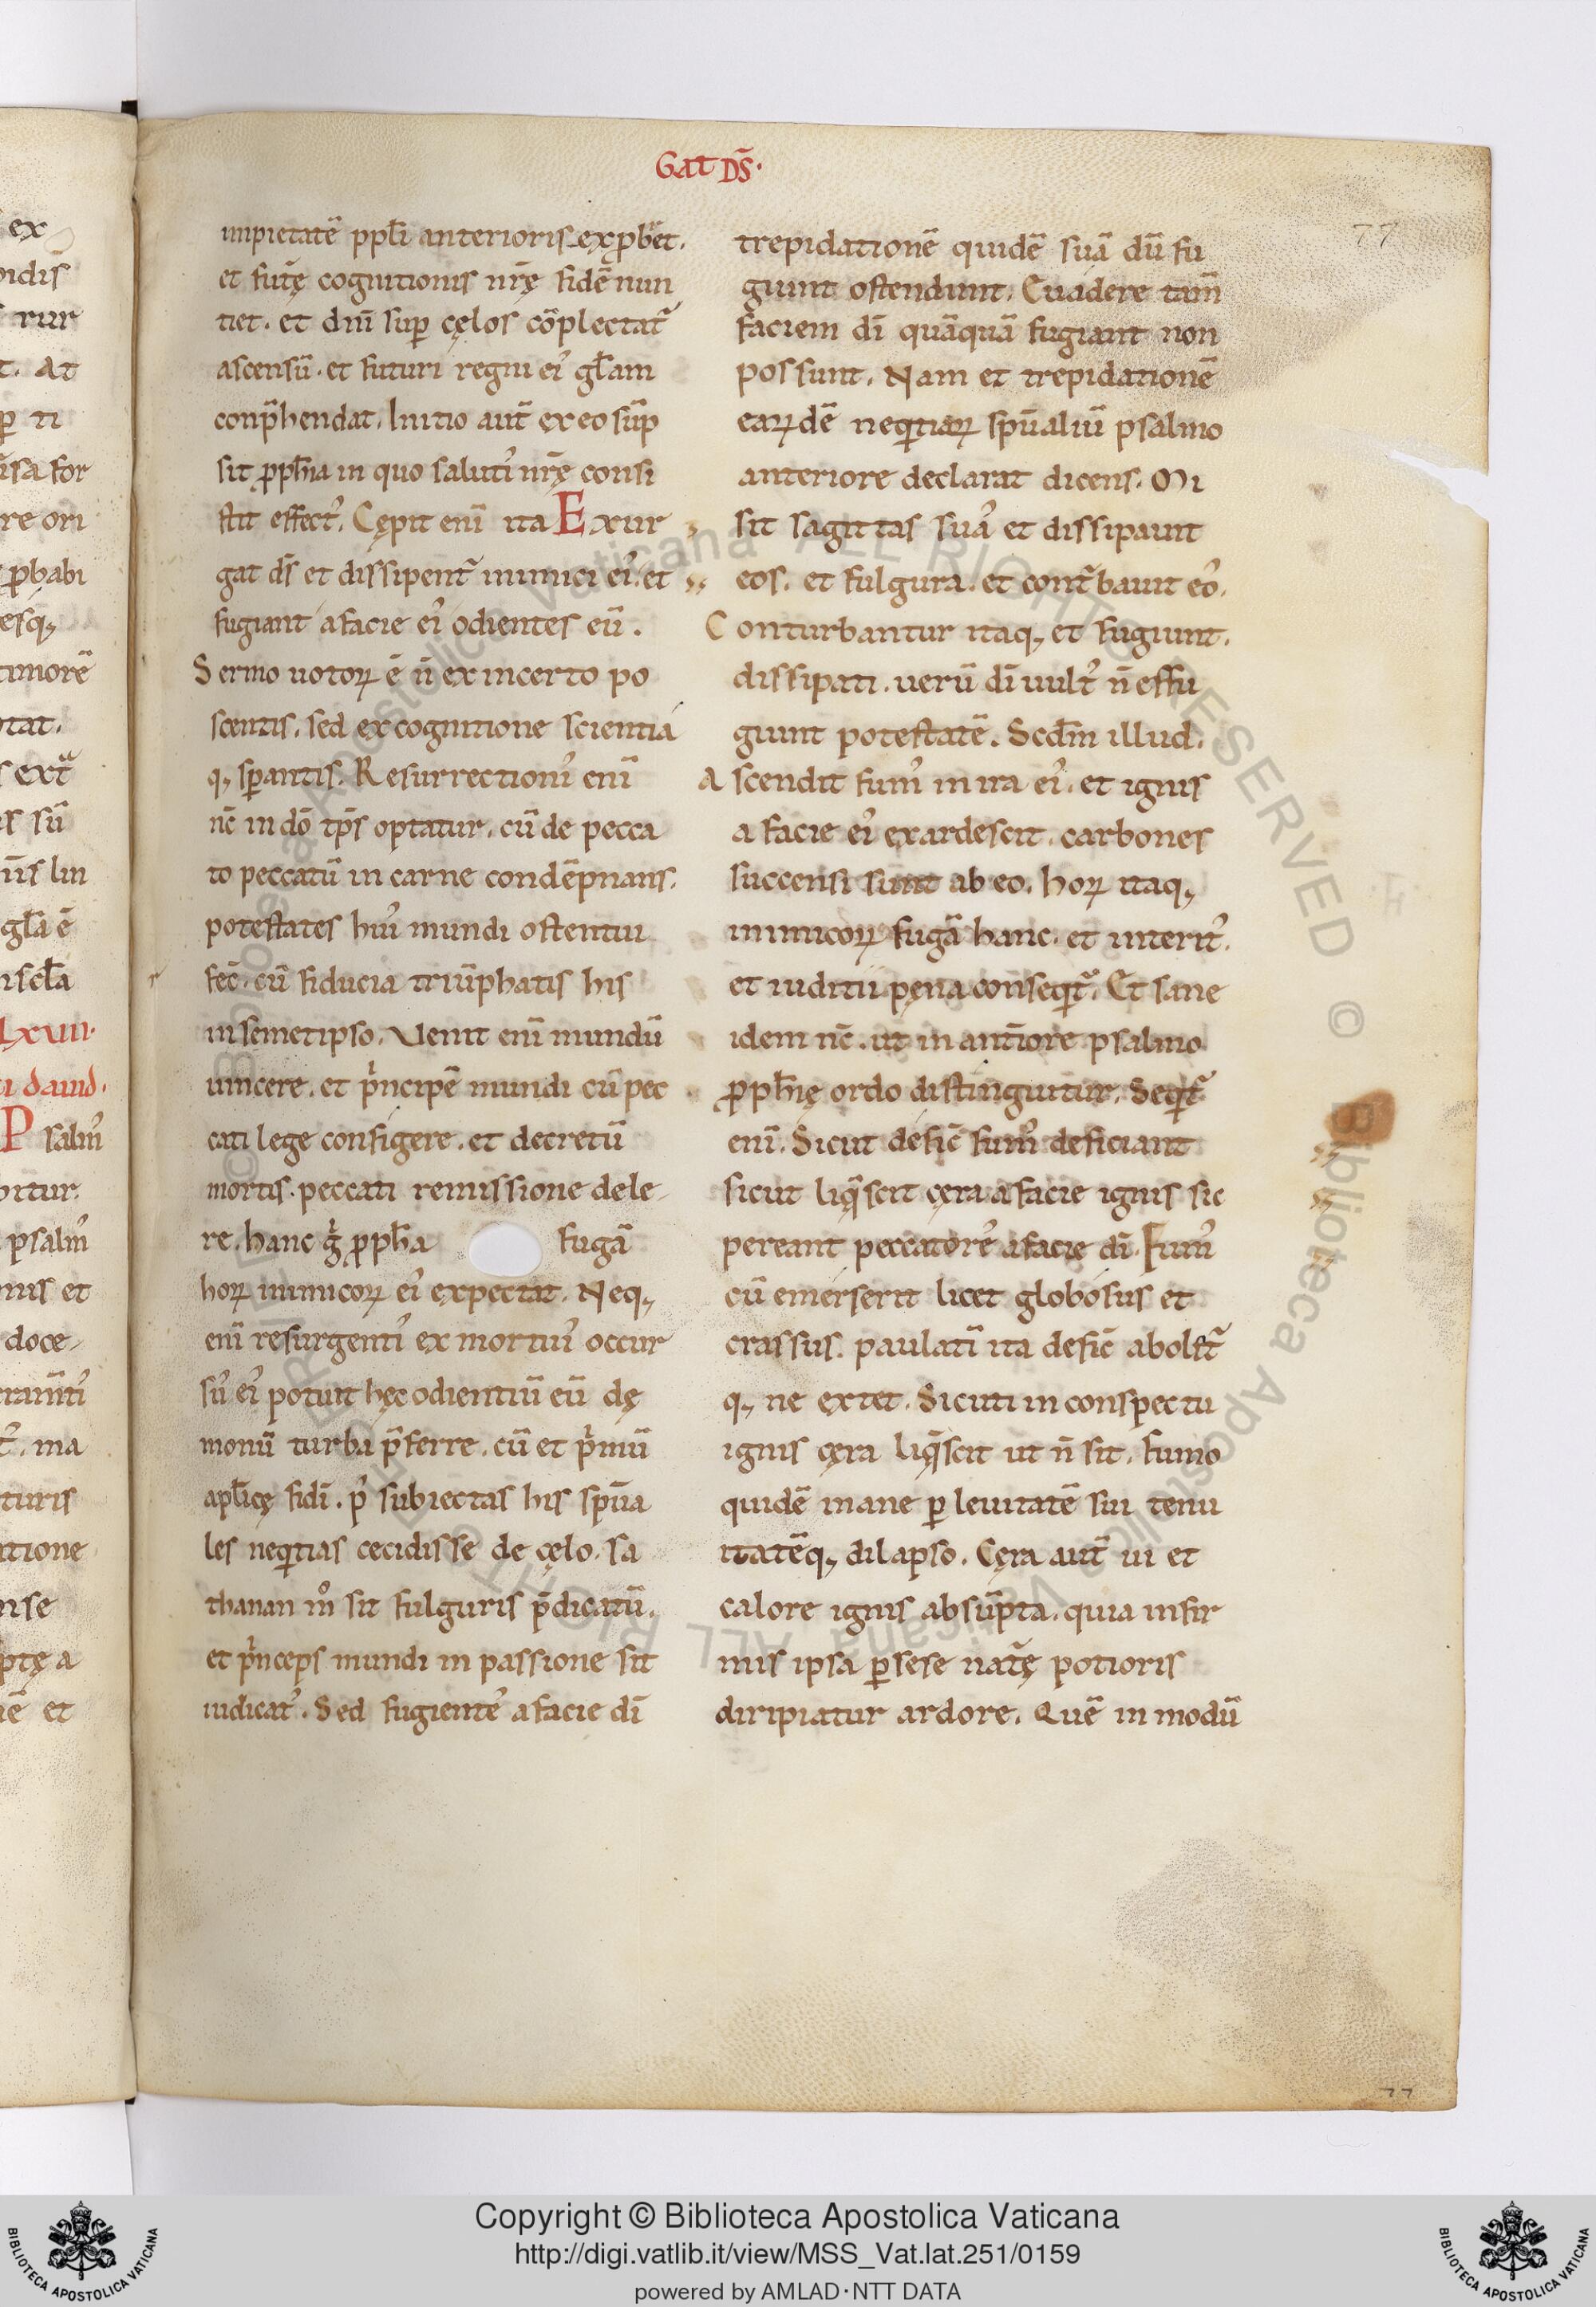 Gat DS̄.
77
impietatē ppl̄i anterioris exprobret.
et futurę cognitionis nr̄ę fidē nun
tiet. et dn̄i sup cęlos cōplectat᷑
ascensū. et futuri regni ei᾽ gl̄am
conp̄hendat. Initio aut̄ ex eo sūp
sit ꝓpħia in quo salutis nr̄ę consi
stit effect᾽. Cępit enī ita Exur
gat ds̄ et dissipent᷑ inimici ei᾽. et
fugiant a facie ei᾽ odientes eū.
Sermo uotoꝝ ē n̄ ex incerto po
scentis. sed ex cognitione scientia
q; sꝑantis. Resurrectionis enī
nc̄ in dō tp̄s optatur. cū de pecca
to peccatū in carne condēpnans.
potestates hui᾽ mundi ostentui
fec̄. cū fiducia triūphatis his
in semetipso. Venit enī mundū
uincere. et p̄ncipē mundi cū pec
cati lege configere. et decretū
mortis. peccati remissione dele
re. hanc g̊ ꝓpħa fugā
hoꝝ inimicoꝝ ei᾽ expectat. Neq;
enī resurgentis ex mortuis occur
sū ei᾽ potuit hęc odientiū eū dę
monū turba p̄ferre. cū et p̄mū
apl̄icę fidi. p᾽ subiectas his sp̄ua
les neq̄tias cecidisse de cęlo. sa
thanan m̊ sit fulguris p̄dicatū.
et p̄nceps mundi in passione sit
iudicat᾽. Sed fugientes a facie dī
trepidationē quidē suā dū fu
giunt ostendunt. Euadere tam̄
faciem dī quāquā fugiant non
possunt. Nam et trepidationē
eaꝝdē neq̄tiaꝝ sp̄ualiū psalmo
anteriore declarat dicens. Mi
sit sagittas suas et dissipauit
eos. et fulgura. et cont᷑bauit eos.
Conturbantur itaq; et fugiunt.
dissipati. uerū dī uult᾽ n̄ effu
giunt potestatē. Scd̄m illud.
Ascendit fum᾽ in ira ei᾽. et ignis
a facie ei᾽ exardescit. carbones
succensi sunt ab eo. hoꝝ itaq;
inimicoꝝ fugā hanc. et interit᾽.
et iuditii pęna conseq̄t᷑. Et sane
idem nc̄. ut in ant̄iore psalmo
ꝓpħię ordo distinguitur. Seq̄t᷑
enī. Sicut defic̄ fum᾽ deficiant
sicut liq̄scit cęra a facie ignis sic
pereant peccatores a facie dī. Fum᾽
cū emerserit licet globosus et
crassus. paulatī ita defic̄ abolet᷑
q; ne extet. Sicuti in conspectu
ignis cęra liq̄scit ut n̄ sit. fumo
quidē inane ꝑ leuitatē sui tenu
itatēq; dilapso. Cęra aut̄ ui et
calore ignis absūpta. quia infir
mis ipsa ꝑ sese nat᷑ę potioris
diripiatur ardore. Quē in modū
77
ex
rur
at
ꝓbabi
timorē
salm᾽
psalm᾽
doce
et
Copyright © Biblioteca Apostolica Vaticana
http://digi.vatlib.it/view/MSS_Vat.lat.251/0159
powered by AMLAD·NTT DATA
BIBLIOTECA APOSTOLICA VATICANA
BIBLIOTECA APOSTOLICA VATICANA